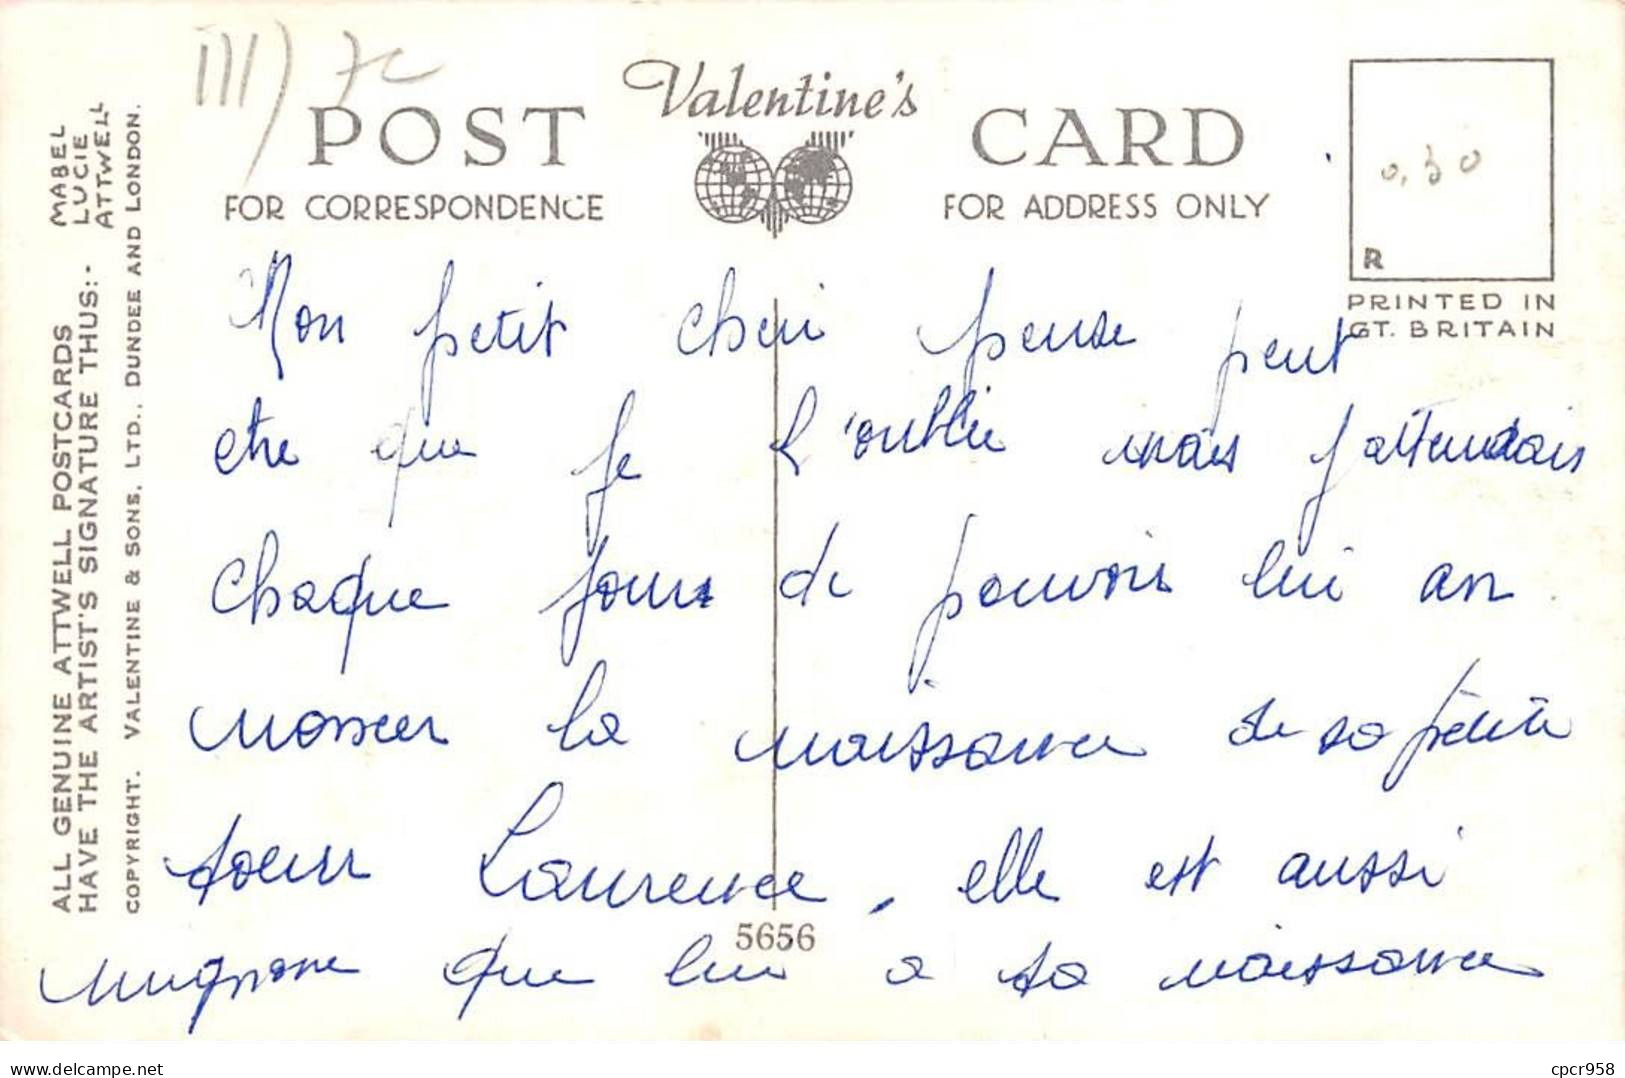 III) 7c
Valentine's
POST CARD
FOR CORRESPONDENCE
FOR ADDRESS ONLY
0,50
R
PRINTED IN
GT. BRITAIN
ALL GENUINE ATTWELL POSTCARDS
HAVE THE ARTIST'S SIGNATURE THUS:-
MABEL
LUCIE
ATTWELL
COPYRIGHT. VALENTINE & SONS, LTD., DUNDEE AND LONDON.
Mon petit cheri pense peut
etre que je l'oublie mais j'attendais
chaque jour de pouvoir lui an
noncer la naissance de sa petite
soeur Laurence, elle est aussi
mignonne que lui a sa naissance
5656
www.delcampe.net
cpcr958